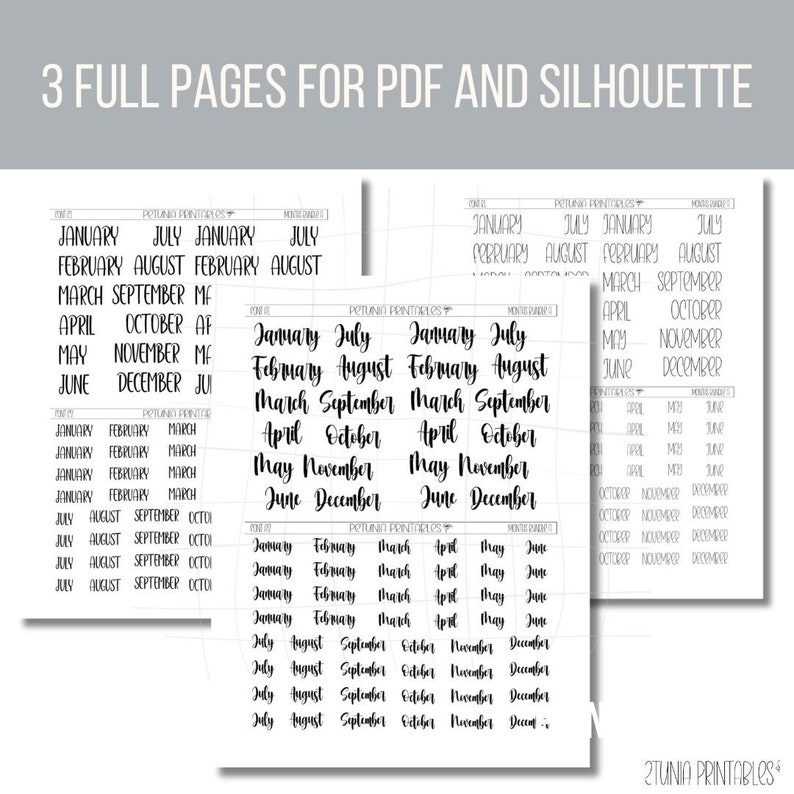 3 FULL PAGES FOR PDF AND SILHOUETTE
FONT C1 PETUNIA PRINTABLES MONTHS BUNDLE A
JANUARY JULY JANUARY JULY
FEBRUARY AUGUST FEBRUARY AUGUST
MARCH SEPTEMBER MA
APRIL OCTOBER AP
MAY NOVEMBER MA
JUNE DECEMBER JU
FONT C2 PETUNIA PRINTAB
JANUARY FEBRUARY MARCH
JANUARY FEBRUARY MARCH
JANUARY FEBRUARY MARCH
JANUARY FEBRUARY MARCH
JULY AUGUST SEPTEMBER OCTO
JULY AUGUST SEPTEMBER OCTO
JULY AUGUST SEPTEMBER OCTO
JULY AUGUST SEPTEMBER OCTO
FONT A1 PETUNIA PRINTABLES MONTHS BUNDLE A
January July January July
February August February August
March September March September
April October April October
May November May November
June December June December
FONT A2 PETUNIA PRINTABLES MONTHS BUNDLE A
January February March April May June
January February March April May June
January February March April May June
January February March April May June
July August September October November December
July August September October November December
July August September October November December
July August September October November Decem
FONT B1 PETUNIA PRINTABLES MONTHS BUNDLE A
JANUARY JULY JANUARY JULY
FEBRUARY AUGUST FEBRUARY AUGUST
MARCH SEPTEMBER
APRIL OCTOBER
MAY NOVEMBER
JUNE DECEMBER
PRINTABLES MONTHS BUNDLE A
RCH APRIL MAY JUNE
APRIL MAY JUNE
APRIL MAY JUNE
RCH APRIL MAY JUNE
OCTOBER NOVEMBER DECEMBER
OCTOBER NOVEMBER DECEMBER
OCTOBER NOVEMBER DECEMBER
OCTOBER NOVEMBER DECEMBER
TUNIA PRINTABLES